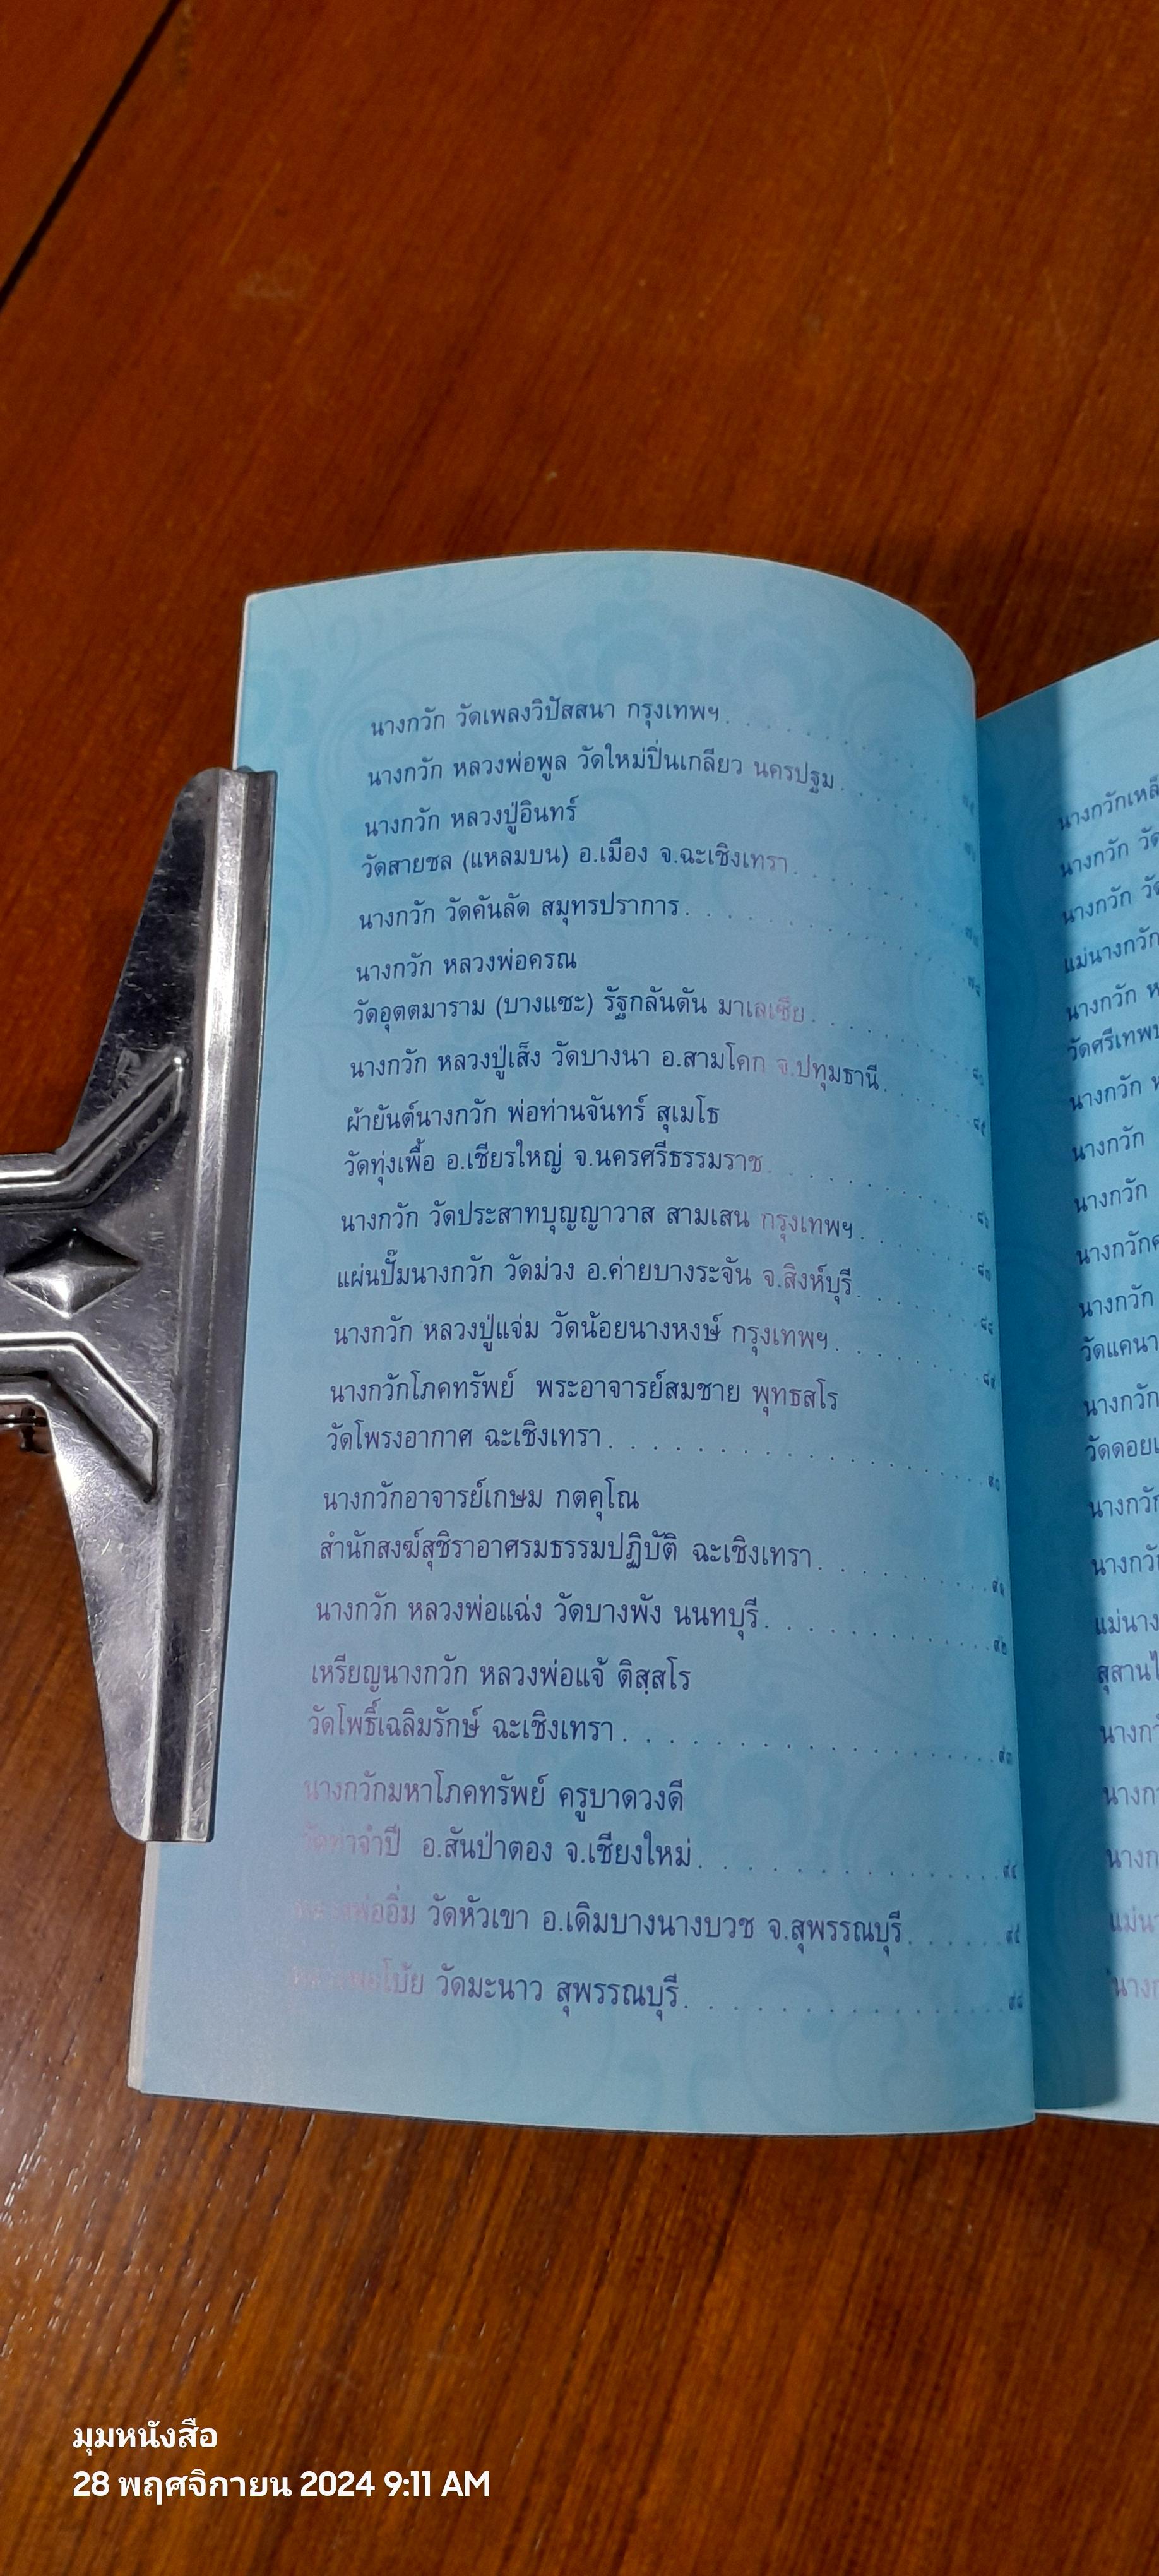 นางกวัก วัดเพลงวิปัสสนา กรุงเทพฯ
นางกวัก หลวงพ่อพูล วัดใหม่ปิ่นเกลียว นครปฐม
นางกวัก หลวงปู่อินทร์
วัดสายชล (แหลมบน) อ.เมือง จ.ฉะเชิงเทรา
นางกวัก วัดคันลัด สมุทรปราการ
นางกวัก หลวงพ่อครณ
วัดอุตตมาราม (บางแซะ) รัฐกลันตัน มาเลเซีย
นางกวัก หลวงปู่เส็ง วัดบางนา อ.สามโคก จ.ปทุมธานี
ผ้ายันต์นางกวัก พ่อท่านจันทร์ สุเมโธ
วัดทุ่งเฟื้อ อ.เชียรใหญ่ จ.นครศรีธรรมราช
นางกวัก วัดประสาทบุญญาวาส สามเสน กรุงเทพฯ
แผ่นปั๊มนางกวัก วัดม่วง อ.ค่ายบางระจัน จ.สิงห์บุรี
นางกวัก หลวงปู่แจ่ม วัดน้อยนางหงษ์ กรุงเทพฯ
นางกวักโภคทรัพย์ พระอาจารย์สมชาย พุทธสโร
วัดโพรงอากาศ ฉะเชิงเทรา
นางกวักอาจารย์เกษม กตคุโณ
สำนักสงฆ์สุชิราอาศรมธรรมปฏิบัติ ฉะเชิงเทรา
นางกวัก หลวงพ่อแฉ่ง วัดบางพัง นนทบุรี ๙๒
เหรียญนางกวัก หลวงพ่อแจ้ ติสฺสโร
วัดโพธิ์เฉลิมรักษ์ ฉะเชิงเทรา ๙๓
นางกวักมหาโภคทรัพย์ ครูบาดวงดี
วัดท่าจำปี อ.สันป่าตอง จ.เชียงใหม่ ๙๔
หลวงพ่ออิ่ม วัดหัวเขา อ.เดิมบางนางบวช จ.สุพรรณบุรี ๙๕
วัดมะนาว สุพรรณบุรี ๙๘
นางกวัก
นางกวัก
นางกวัก
แม่นางกวัก
นางกวัก
นางกวัก
นางกวัก
นางกวัก
นางกวัก
นางกวัก
มุมหนังสือ
28 พฤศจิกายน 2024 9:11 AM